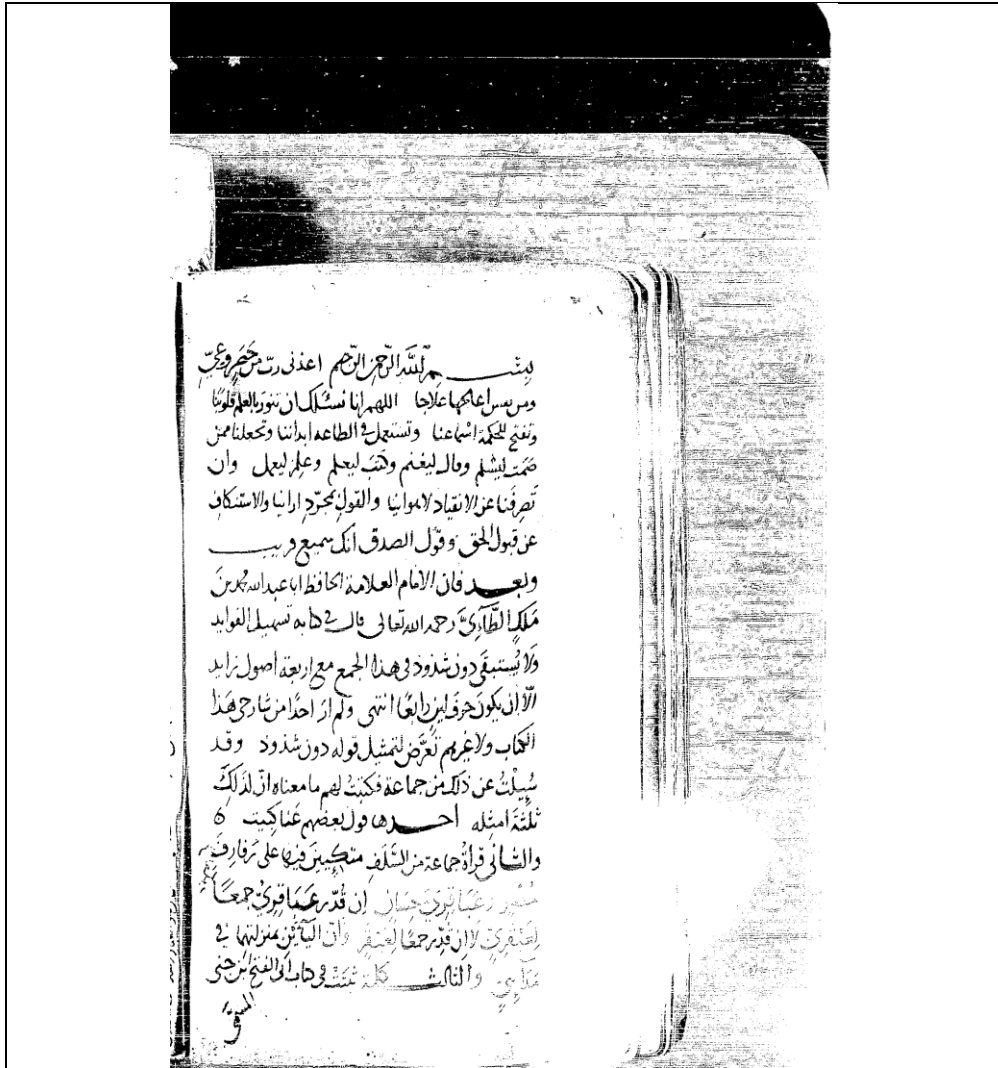 بسم الله الرحمن الرحيم اعذني رب من حصر وعي
ومن نفس اعالجها علاجا اللهم انا نسئلك ان تنور بالعلم قلوبنا
وتفتح للحكمة اسماعنا وتستعمل في الطاعة ابداننا وتجعلنا ممن
صمت ليسلم وقال ليغنم وكتب ليعلم وعلم ليعمل وان
تصرفنا عن الانقياد لاهوائنا والقول بمجرد ارائنا والاستنكاف
عن قبول الحق وقول الصدق انك سميع قريب
وبعد فان الامام العلامة الحافظ ابا عبد الله محمد بن
ملك الطآءي رحمه الله تعالى قال في كتابه تسهيل الفوايد
ولا يستبقى دون شذوذ في هذا الجمع مع اربعة اصول زايد
الا ان يكون حرف لين رابعا انتهى ولم ار احدا من شارحي هذا
الكتاب ولا غيرهم تعرض لتمثيل قوله دون شذوذ وقد
سيلت عن ذلك من جماعة فكتبت لهم ما معناه ان لذلك
ثلثة امثله احدها قول بعضهم عناكبيت
والثاني قراة جماعة من السلف متكيين فيها على رفارف
خضر وعباقري حسان ان قدر عباقري جمعا
لعبقري لا ان قدر جمعا لعبقر وان اليآئين بمنزلتهما في
مدايني والثالث كلمة ثبتت في كتاب ابي الفتح ابن جني